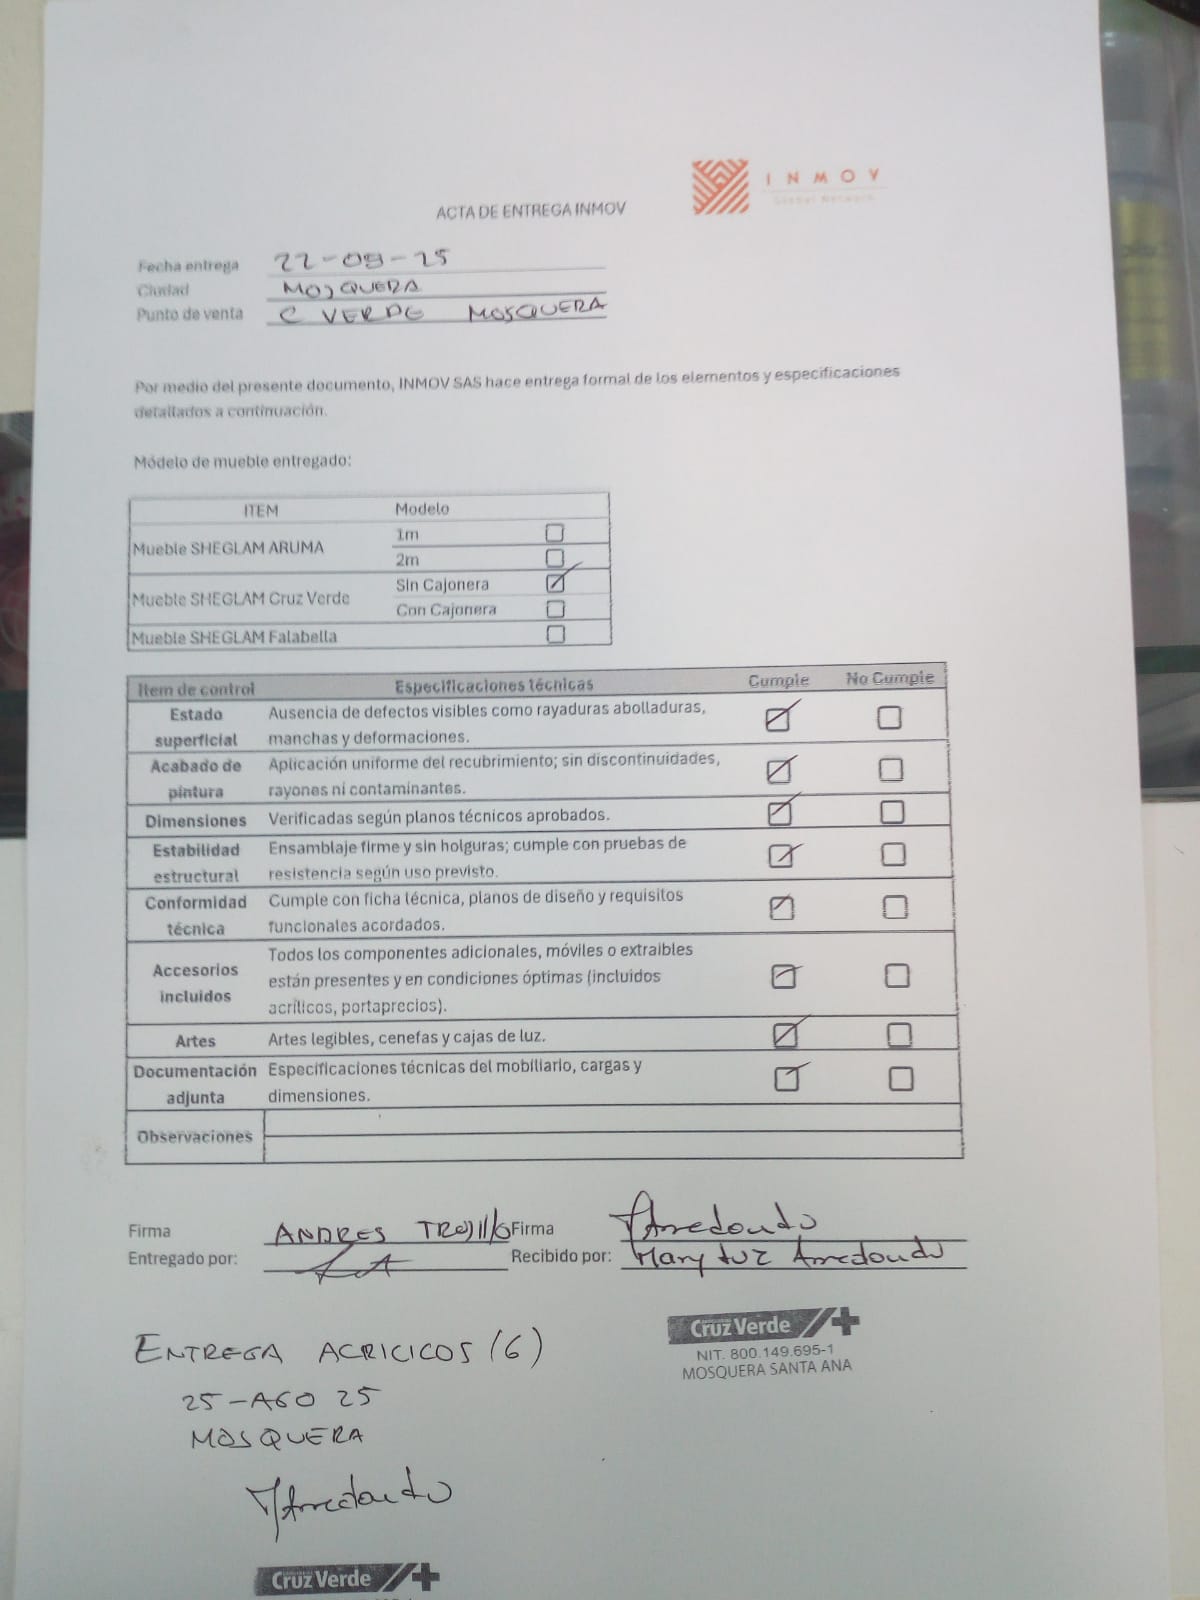 INMOV
Global Network
ACTA DE ENTREGA INMOV
Fecha entrega 22-08-25
Ciudad MOSQUERA
Punto de venta C VERDE MOSQUERA
Por medio del presente documento, INMOV SAS hace entrega formal de los elementos y especificaciones
detallados a continuación.
Módelo de mueble entregado:
ITEM Modelo
Mueble SHEGLAM ARUMA
1m
2m
Mueble SHEGLAM Cruz Verde
Sin Cajonera
Con Cajonera
Mueble SHEGLAM Falabella
Item de control Especificaciones técnicas Cumple No Cumple
Estado superficial
Ausencia de defectos visibles como rayaduras abolladuras,
manchas y deformaciones.
Acabado de pintura
Aplicación uniforme del recubrimiento; sin discontinuidades,
rayones ni contaminantes.
Dimensiones Verificadas según planos técnicos aprobados.
Estabilidad estructural
Ensamblaje firme y sin holguras; cumple con pruebas de
resistencia según uso previsto.
Conformidad técnica
Cumple con ficha técnica, planos de diseño y requisitos
funcionales acordados.
Accesorios incluidos
Todos los componentes adicionales, móviles o extraibles
están presentes y en condiciones óptimas (incluidos
acrílicos, portaprecios).
Artes Artes legibles, cenefas y cajas de luz.
Documentación adjunta
Especificaciones técnicas del mobiliario, cargas y
dimensiones.
Observaciones
Firma ANDRES TROJIllO Firma MArredondo
Entregado por: Recibido por: Mary luz Arredondo
Cruz Verde
NIT. 800.149.695-1
MOSQUERA SANTA ANA
ENTREGA ACRICICOS (6)
25-AGO 25
MOSQUERA
MArredondo
Cruz Verde